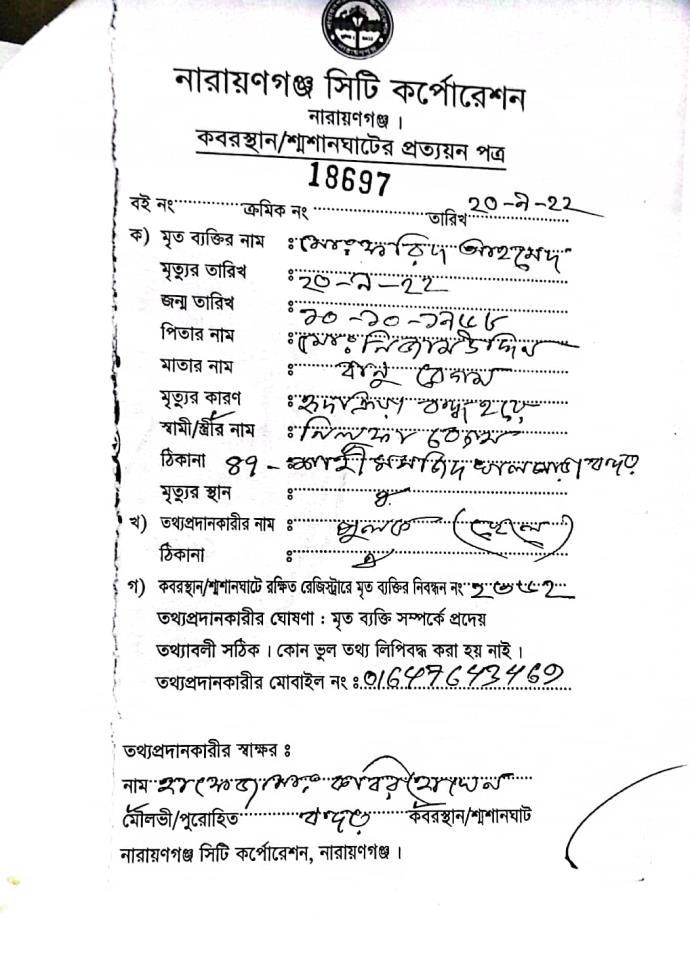 নারায়ণগঞ্জ সিটি কর্পোরেশন
নারায়ণগঞ্জ ।
কবরস্থান/শ্মশানঘাটের প্রত্যয়ন পত্র
18697
বই নং ক্রমিক নং তারিখ ২০-৯-২২
ক) মৃত ব্যক্তির নাম ঃ মোঃ ফরিদ আহমেদ
মৃত্যুর তারিখ ঃ ২০-৯-২২
জন্ম তারিখ ঃ ১০-১০-১৯৫৮
পিতার নাম ঃ মোঃ নিজাম উদ্দিন
মাতার নাম ঃ বানু বেগম
মৃত্যুর কারণ ঃ হৃদক্রিয়া বন্ধ হয়ে
স্বামী/স্ত্রীর নাম ঃ নিলুফা বেগম
ঠিকানা 89 - শাহী মসজিদ বন্দর
মৃত্যুর স্থান ঃ ঐ
খ) তথ্যপ্রদানকারীর নাম ঃ পুলক (ছেলে)
ঠিকানা ঃ ঐ
গ) কবরস্থান/শ্মশানঘাটে রক্ষিত রেজিস্ট্রারে মৃত ব্যক্তির নিবন্ধন নং
তথ্যপ্রদানকারীর ঘোষণা : মৃত ব্যক্তি সম্পর্কে প্রদেয়
তথ্যাবলী সঠিক । কোন ভুল তথ্য লিপিবদ্ধ করা হয় নাই ।
তথ্যপ্রদানকারীর মোবাইল নং ঃ 01647643469
তথ্যপ্রদানকারীর স্বাক্ষর ঃ
নাম হাফেজ মোঃ কবির হোসেন
মৌলভী/পুরোহিত বন্দর কবরস্থান/শ্মশানঘাট
নারায়ণগঞ্জ সিটি কর্পোরেশন, নারায়ণগঞ্জ ।